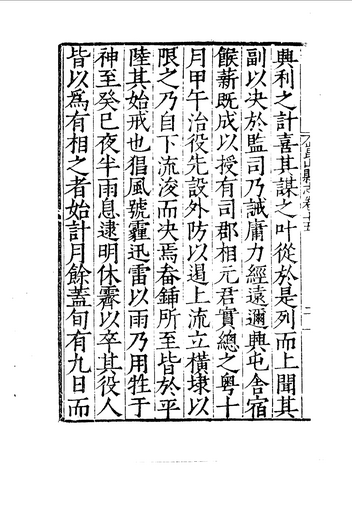 興利之計喜其謀之叶從於是列而上聞其
副以决於監司乃誡庸力經遠邇興屯舍宿
餱薪既成以授有司郡相元君實總之粤十
月甲午治役先設外防以遏上流立橫埭以
限之乃自下流浚而决焉畚鍤所至皆於平
陸其始戒也猖風號霾迅雷以雨乃用牲于
神至癸巳夜半雨息逮明休霽以卒其役人
皆以爲有相之者始計月餘蓋旬有九日而